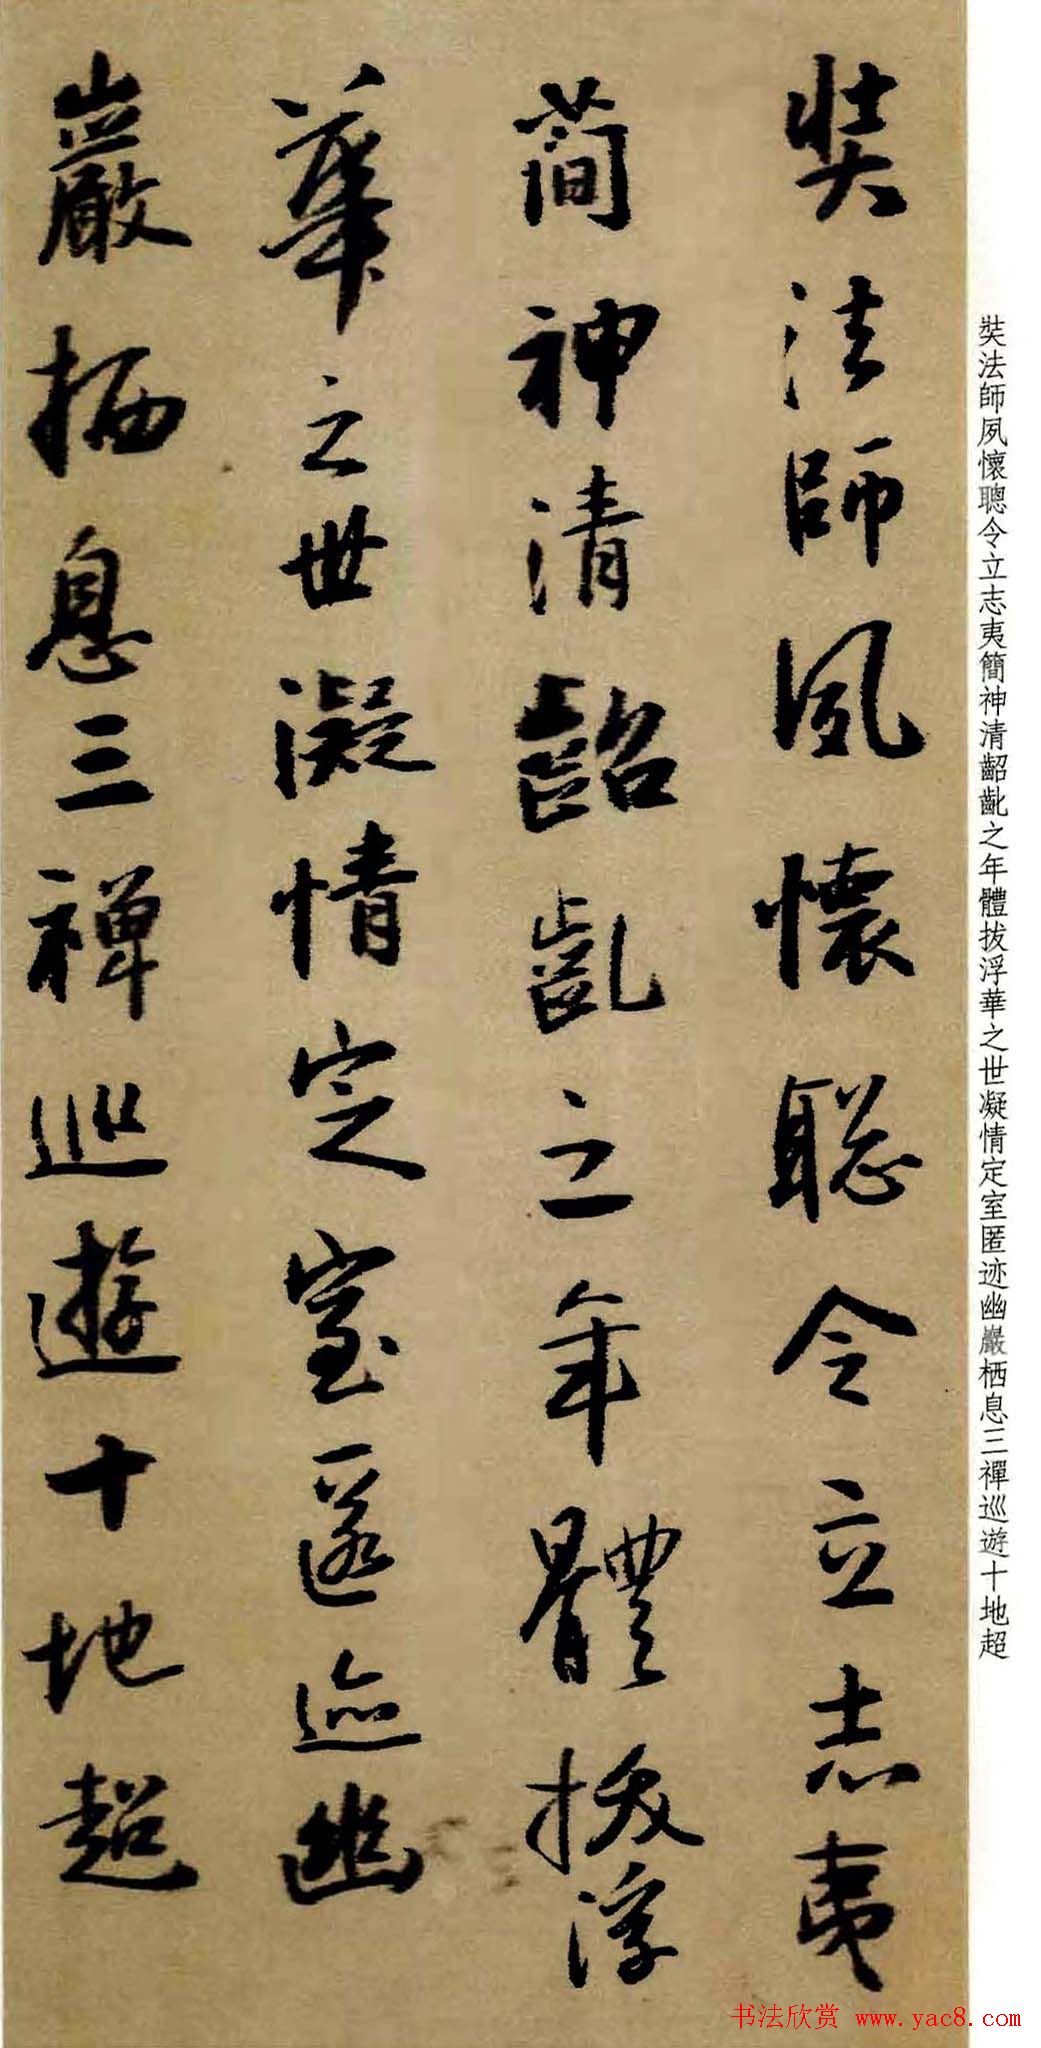 奘法師夙懷聰令立志夷
簡神清齠齔之年體拔浮
華之世凝情定室匿迹幽
巖栖息三禪巡遊十地超
奘法師夙懷聰令立志夷簡神清齠齔之年體拔浮華之世凝情定室匿迹幽巖栖息三禪巡遊十地超
书法欣赏 www.yac8.com